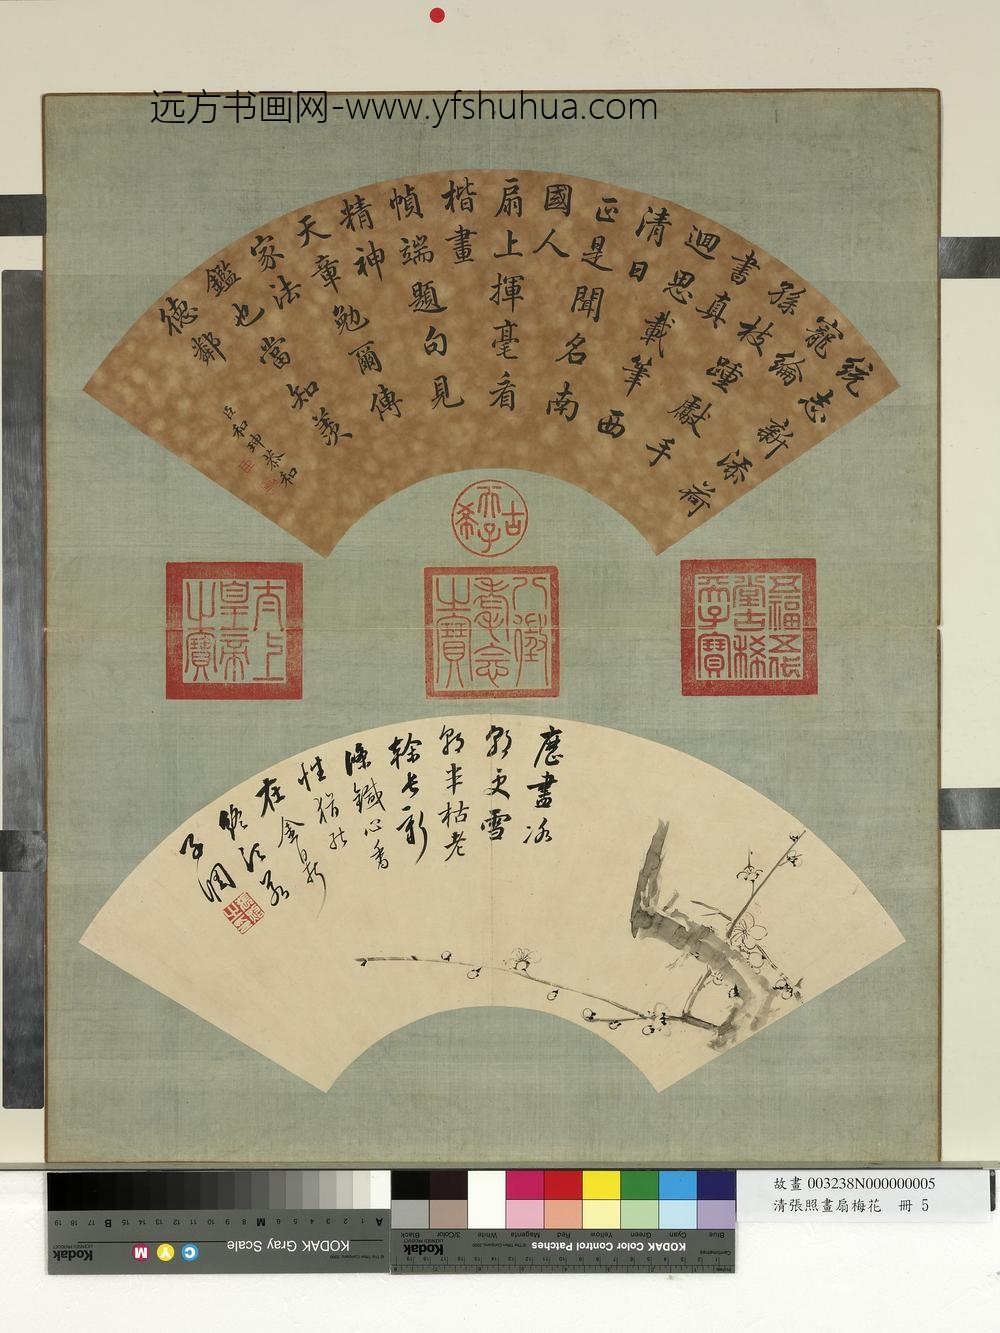 远方书画网-www.yfshuhua.com
統志新添荷
寵綸
孫枝踵獻手
書真
迴思載筆西
清日
正是聞名南
國人
扇上揮毫看
楷畫
幀端題句見
精神
天章勉爾傳
家法
鑑也當知羨
德鄰
臣和珅恭和
古希天子
五福五代堂古稀天子寶
八徵耄念之寶
太上皇帝之寶
歷盡冰
朝更雪
朝半枯老
幹長新
條鐵心香
性猶
在金鼎
終須若
子調
故畫 003238N000000005
清張照畫扇梅花 冊 5
KODAK Gray Scale
Kodak
C Y M
A 1 2 3 4 5 6 M 8 9 10 11 12 13 14 15 B 17 18 19
KODAK Color Control Patches
Kodak
Blue Cyan Green Yellow Red Magenta White 3/Color Black